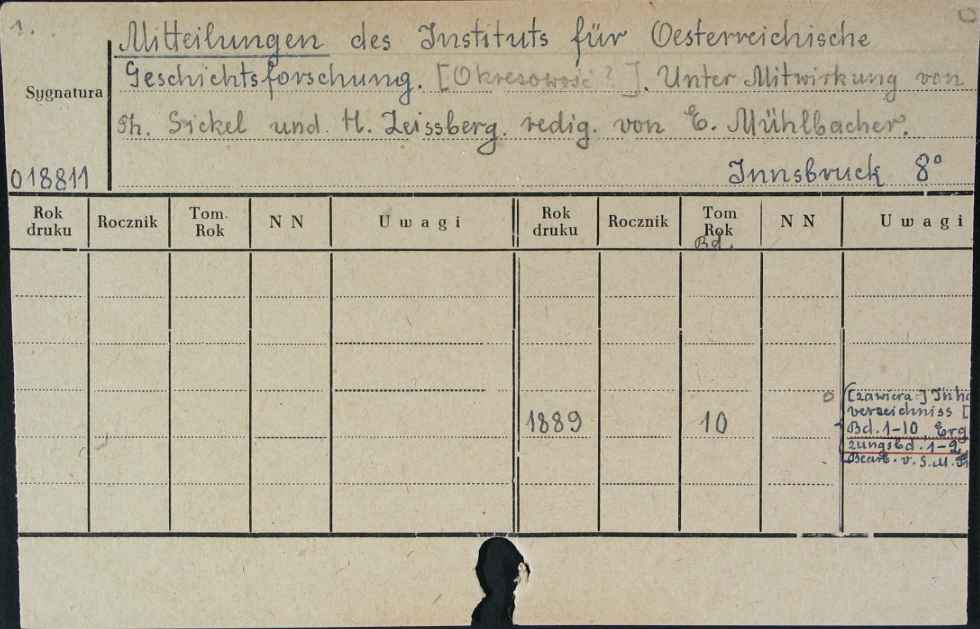 1.
Mitteilungen des Instituts für Oesterreichische
Geschichtsforschung. [Okresowość?]. Unter Mitwirkung von
Th. Sickel und H. Zeissberg. redig. von E. Mühlbacher.
Innsbruck 8°
Sygnatura
018811
Rok druku Rocznik Tom. Rok NN Uwagi Rok druku Rocznik Tom Rok NN Uwagi
Bd.
1889 10
[zawiera:] Inha
verzeichniss [
Bd. 1-10, Erg
zungsbd. 1-2,
Bearb. v. S.M.